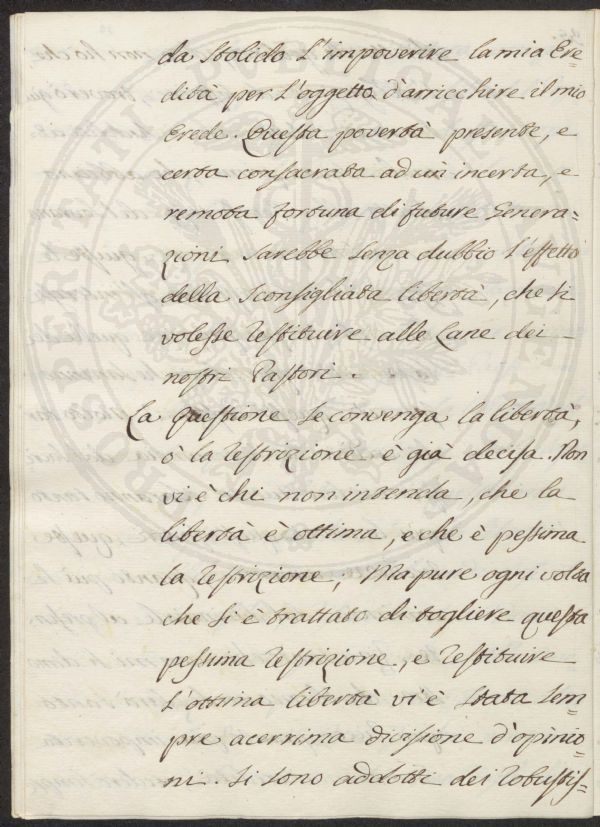 da stolido l'impoverire la mia Ere-
dità per l'oggetto d'arricchire il mio
Erede. Questa povertà presente, e
certa consacrata ad un incerta, e
remota fortuna di future Genera-
zioni sarebbe senza dubbio l'effetto
della sconsigliata libertà, che si
volesse restituire alle Lane dei
nostri Pastori.
La questione se convenga la libertà,
ò la restrizione è già decisa. Non
vi è chi non intenda, che la
libertà è ottima, e che è pessima
la restrizione; Ma pure ogni volta
che si è trattato di togliere questa
pessima restrizione, e restituire
l'ottima libertà vi è stata sem-
pre acerrima divisione d'opinio-
ni. Si sono addotti dei robustis-